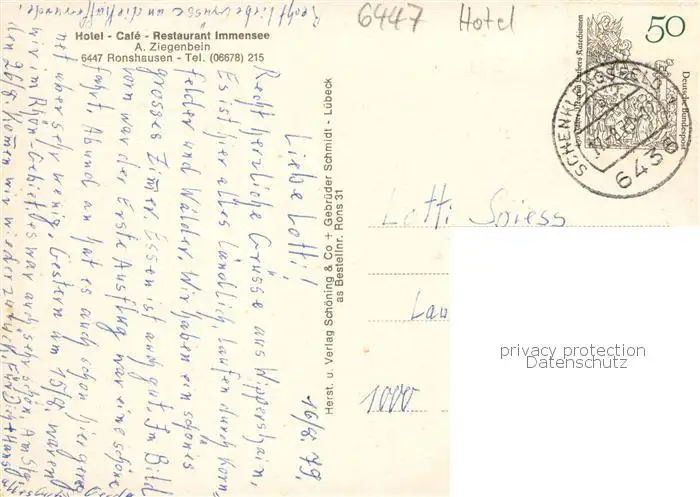 6447 Hotel
Hotel - Café - Restaurant Immensee
A. Ziegenbein
6447 Ronshausen - Tel. (06678) 215
50
Deutsche Bundespost
SCHENKLENGSFELD
6436
Herst. u. Verlag Schöning & Co + Gebrüder Schmidt - Lübeck
as Bestellnr. Rons 31
16/8. 79.
Liebe Lotti!
Recht herzliche Grüsse aus Wippershain,
Es ist hier alles Ländlich, Laufen durch Korn-
felder und Wälder. Wir haben ein schönes
grosses Zimer Essen ist auch gut. Im Bild
vorn war der Erste Ausflug war eine schöne
fahrt. Ab und an hat es auch schon hier gereg
net aber sehr wenig. Gestern am 15/8. waren
wir im Rhön-Gebirt es war auch sehr schön. Am
den 26/8. komen wir wieder zurück. Für Dich + Hans
Recht liebe Grüsse an die Kaffeerunde!
Lotti Spiess
Lau
1000
privacy protection
Datenschutz